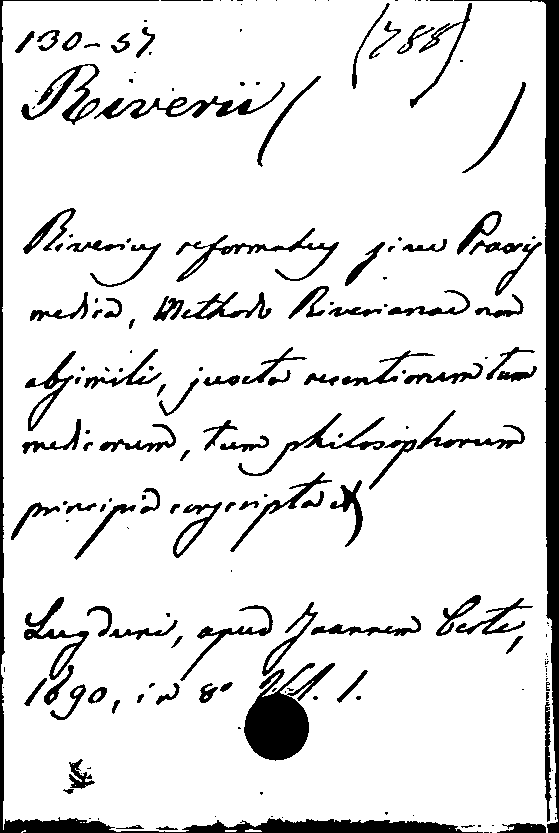 130-57. (788)
Riverii ( )
Riverius reformatus sive Praxis
medica, Methodo Riverianae non
absimili, juxta recentiorum tum
medicorum, tum philosophorum
principia conscripta
Lugduni, apud Joannem Certe,
1690, in 8° Vol. 1.